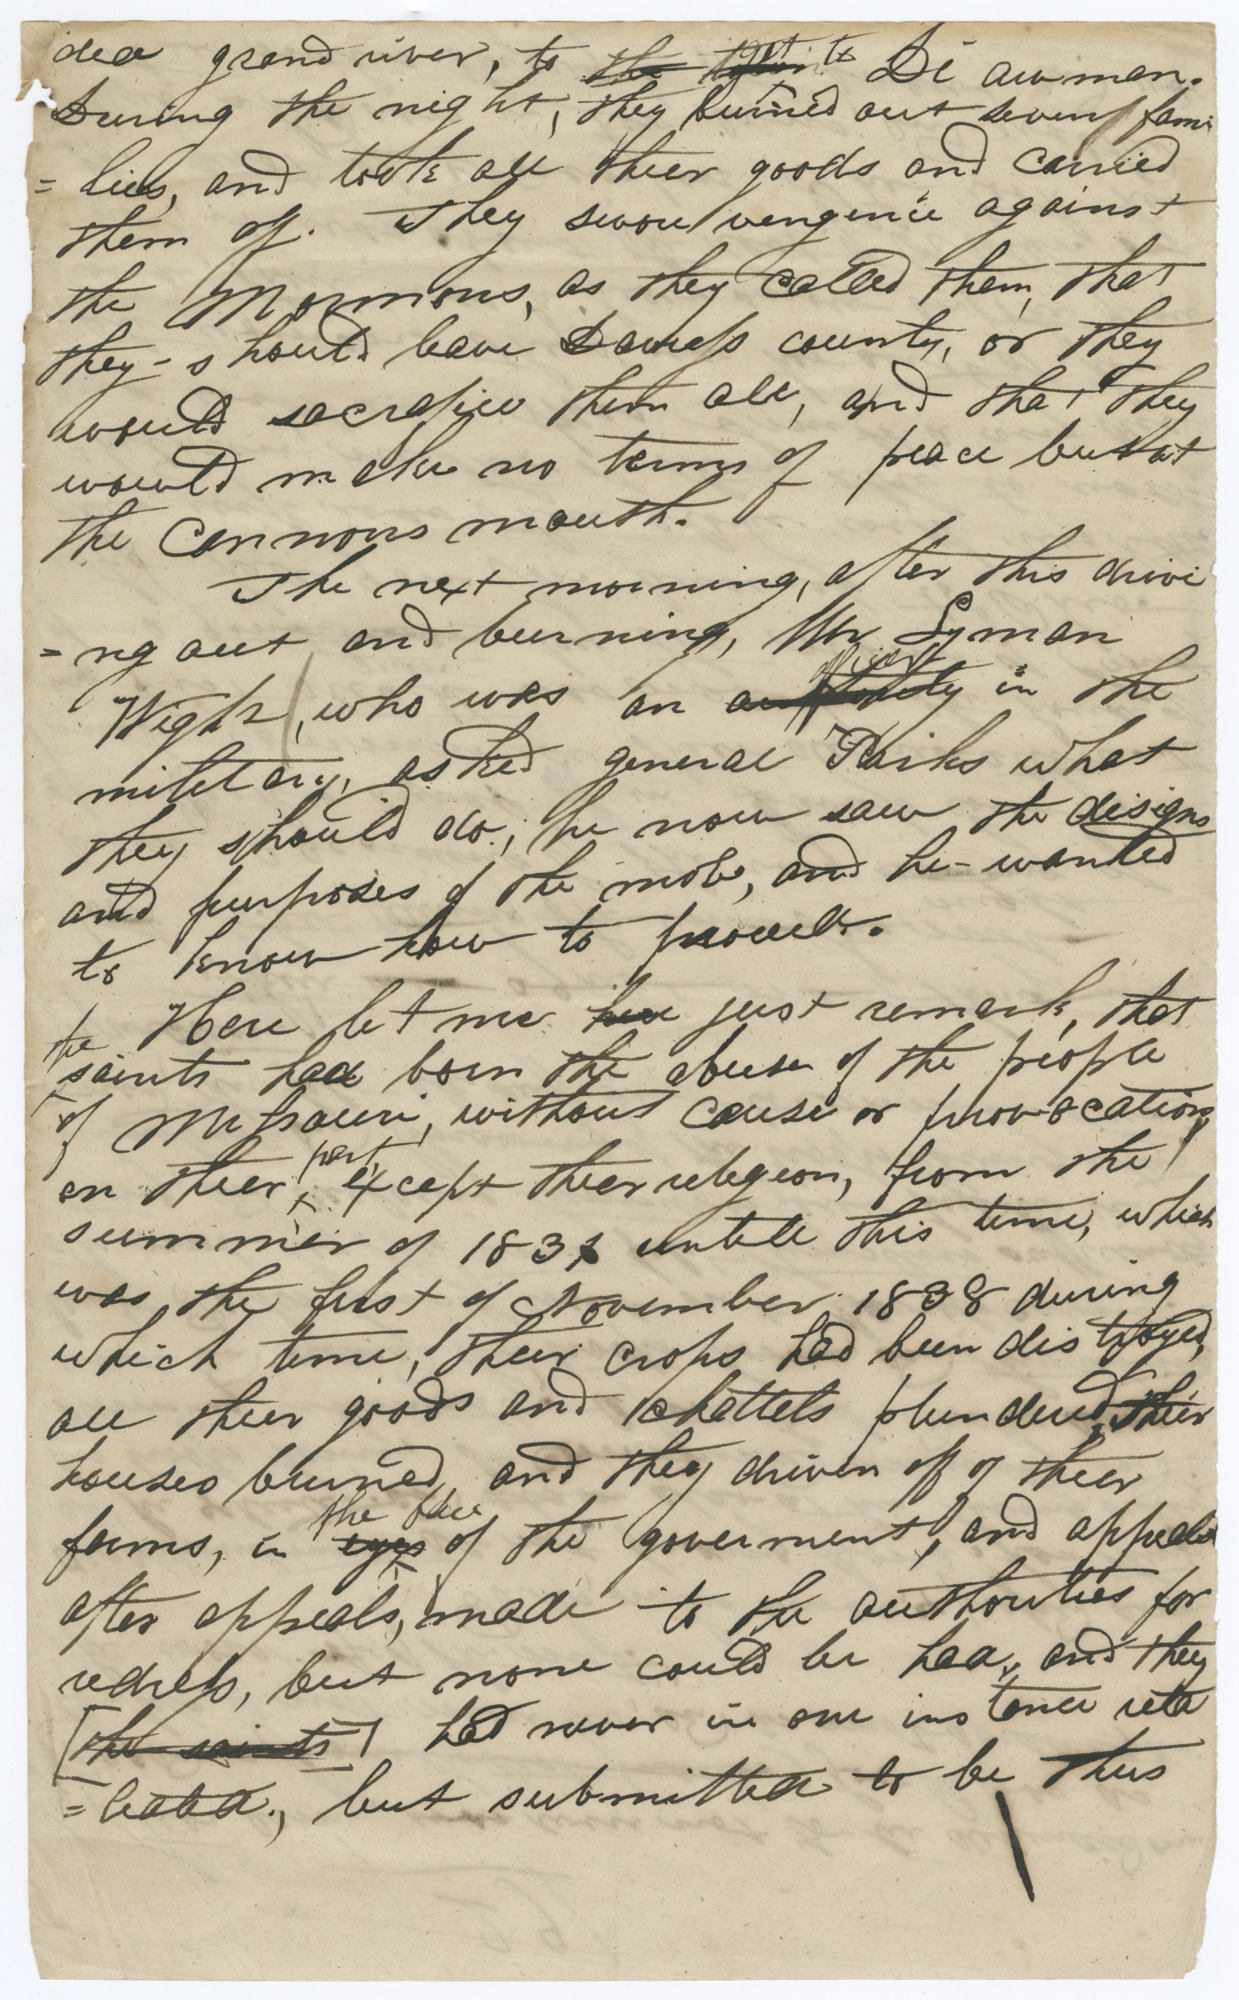 ded grand river, to the get to Di awman.
During the night, they burned out seven fami
= lies, and took all their goods and carried
them off. They swore vengence against
the Mormons, as they called them, that
they should leave Daviess county, or they
would sacrafice them all, and that they
would make no terms of peace but at
the Cannons mouth.
The next morning, after this drivi
= ng out and burning, Mr Lyman
Wight, who was an authority officer in the
military, asked general Parks what
they should do; he now saw the designs
and purposes of the mob, and he wanted
to know how to proceed.
Here let me here just remark, that
the saints had born the abuse of the people
of Missouri, without cause or provocation
on their part, except their religion, from the
summer of 183 untill this time, which
was the first of November 1838 during
which time, their crops had been distroyed,
all their goods and chattels plundered, their
houses burned, and they driven off of their
farms, in eyes the face of the goverment, and appeals
after appeals, made to the authorities for
redress, but none could be had, and they
[the saints] had never in one instance reta
= liated., but submitted to be thus